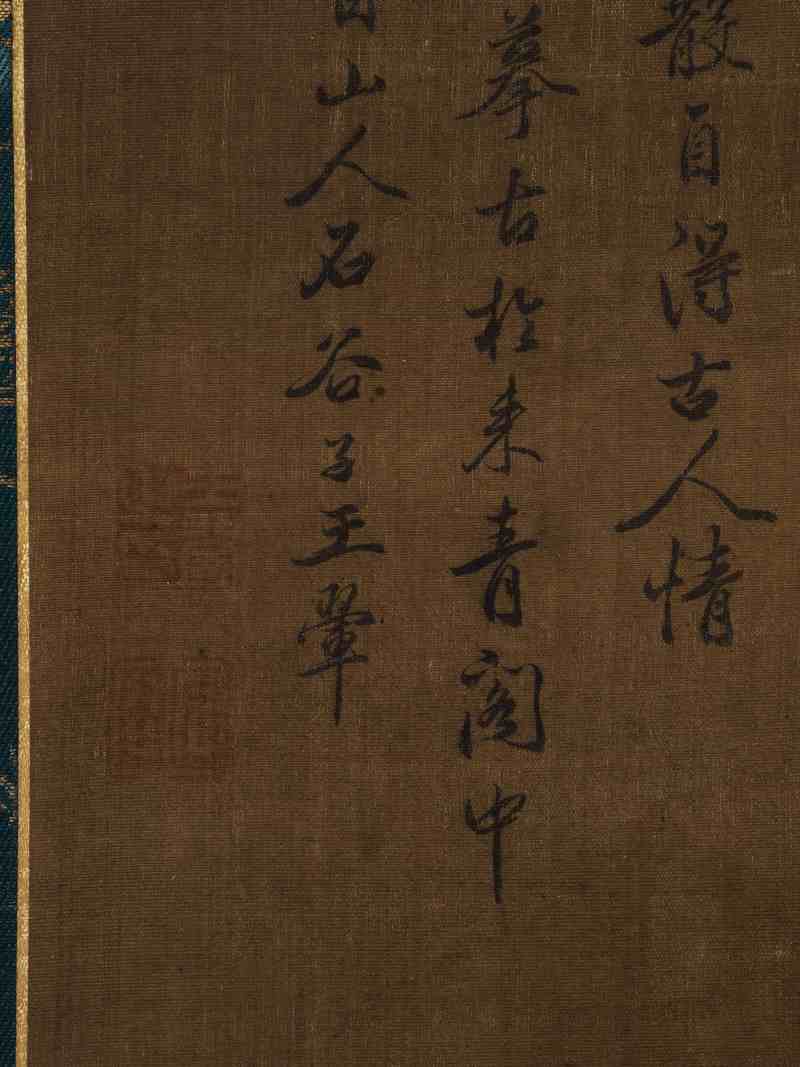 散自得古人情
摹古於来青閣中
目山人石谷子王翬